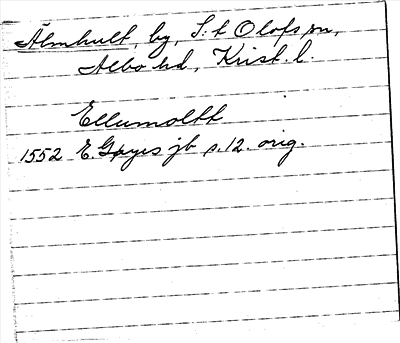 Älmhult, by, S:t Olofs sn,
Albo hd, Krist. l.
Ellumoltt
1552 E. Gøyes jb s. 12. orig.